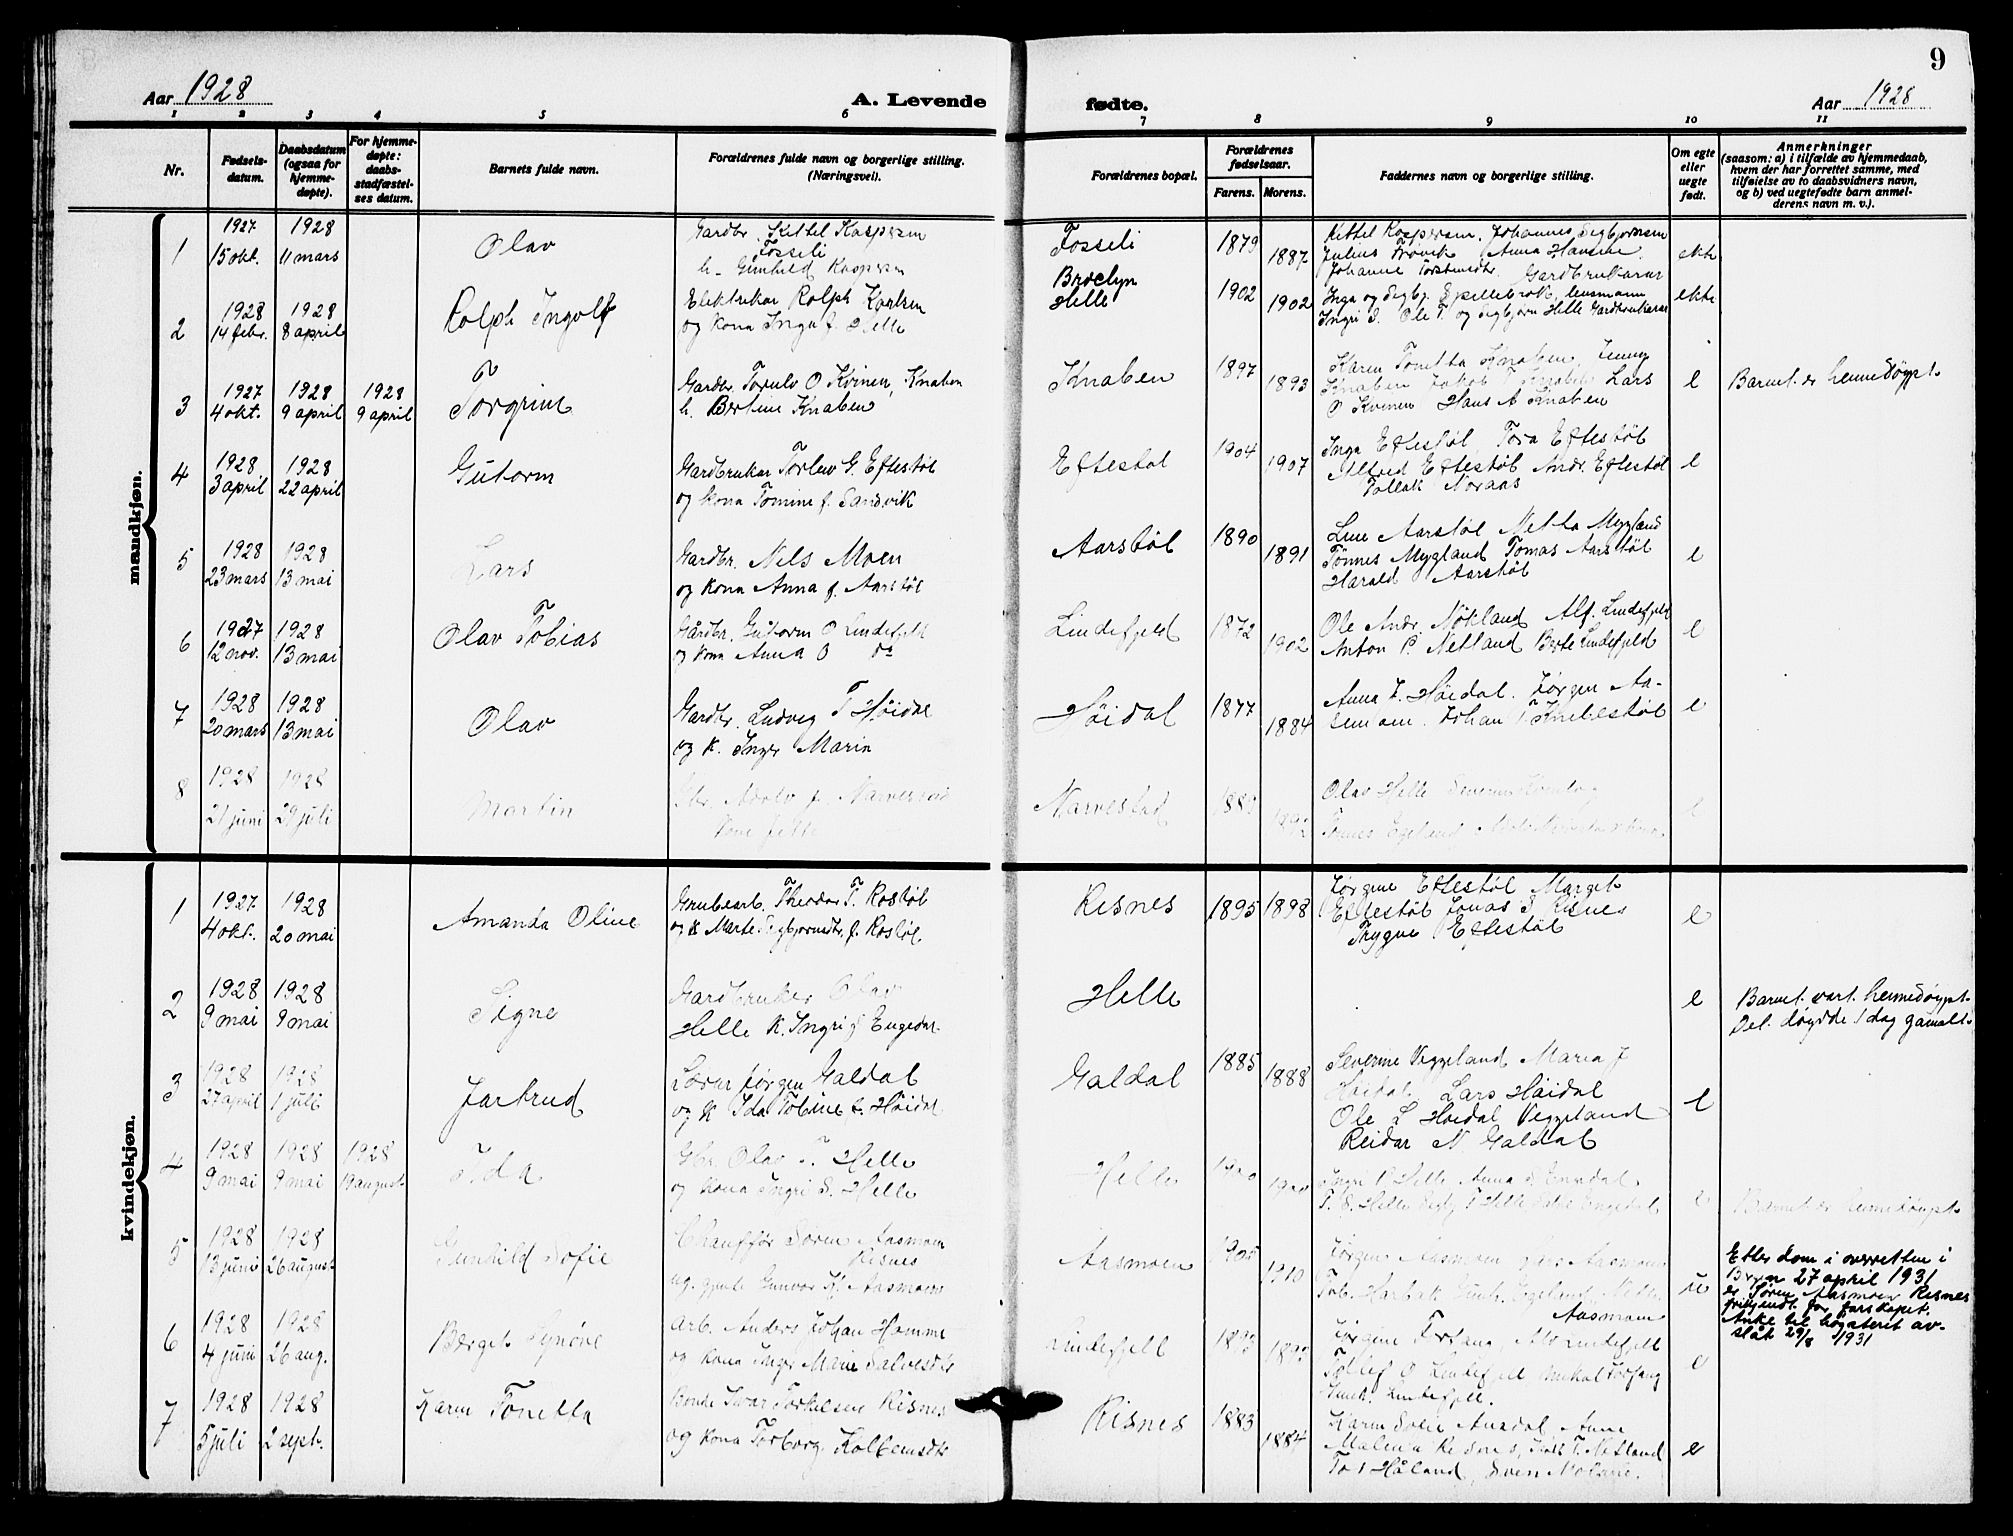 9
Aar 1928
A. Levende
fødte.
Aar 1928
1 2 3 4 5 6 7 8 9 10 11
Nr.
Fødsels-
datum.
Daabsdatum
(ogsaa for
hjemme-
døpte).
For hjemme-
døpte:
daabs-
stadfæstel-
ses datum.
Barnets fulde navn.
Forældrenes fulde navn og borgerlige stilling.
(Næringsvei).
Forældrenes bopæl.
Forældrenes
fødselsaar.
Farens. Morens.
Faddernes navn og borgerlige stilling.
Om egte
eller
uegte
født.
Anmerkninger
(saasom: a) i tilfælde av hjemmedaab,
hvem der har forrettet samme, med
tilføielse av to daabsvidners navn,
og b) ved uegtefødte barn anmel-
derens navn m. v.).
mandkjøn.
1
1927
15 okt.
1928
11 mars
Olav
Gardbr. Kittel Kaspersen
Fosseli
h. Gunhild Kaspersen
Fosseli
1879
1887
Kittel Kaspersen. Johannes Sigbjørnsen
Julius Trøvik Anna Hansine.
Johanne Gardbrukarar
ekte
2
1928
14 febr.
1928
8 april
Rolph Ingolf
Elektrikar Rolph Karlsen
og kona Inga f. Helle
Broclyn
Helle
1902
1902
Inga og Sigbj. Spillebrok, lensmann
Ingri S. Ole T. og Sigbjørn Helle Gardbrukarar
ekte
3
1927
4 okt.
1928
9 april
1928
9 april
Torgrim
Gardbr. Torulv O Kvinen, Knaben
h. Bertine Knaben
Knaben
1897
1893
Karen Tonetta Knaben, Jenny
Knaben Jakob T Knaben Lars
O Kvinen Hans A Knaben
e
Barnet er heimedøypt.
4
1928
3 april
1928
22 april
Gutorm
Gardbrukar Torlav G. Eftestøl
og kona Tomine f. Sandvik
Eftestøl
1904
1907
Inga Eftestøl, Tora Eftestøl
Alfred Eftestøl Andr. Eftestøl
Tollak Noraas
e
5
1928
23 mars
1928
13 mai
Lars
Gardbr. Nels Moen
og kona Anna f. Aarstøl
Aarstøl
1890
1891
Line Aarstøl Netta Mygland
Tønnes Mygland Tomas Aarstøl
Harald Aarstøl
e
6
1927
12 nov.
1928
13 mai
Olav Tobias
Gårdbr. Gutorm O Lindefjeld
og kona Anna O do
Lindefjeld
1872
1902
Ole Andr. Nökland Alf. Lindefjeld
Anton P. Netland Berte Lindefjeld
e
7
1928
20 mars
1928
13 mai
Olav
Gardbr. Ludvig T Høidal
og k. Inger Marin
Høidal
1877
1884
Anna J. Høidal. Jørgen Aa-
senmoen. Johan T Knibestøl
e
8
1928
21 juni
1928
29 juli
Martin
Gbr. Adolv Narvestad
Kone Jette
Narvestad
188
Olav Helle Severin
Tønnes Egeland
e
kvindekjøn.
1
1927
4 okt.
1928
20 mai
Amanda Oline
Grubearb. Theodor T. Rostøl
og k Marte Sigbjørnsdtr. f. Rostøl
Risnes
1895
1898
Jørgine Eftestøl Marget
Eftestøl Jonas S Risnes
Trygve Eftestøl
e
2
1928
9 mai
1928
9 mai
Signe
Gardbruker Olav
Helle k. Ingri f Engedal
Helle
e
Barnet vart heimedøypt.
Det døydde 1 dag gamalt.
3
1928
27 april
1928
1 juli
Jartrud
Lærar Jørgen Galdal
og k Ida Tobine f. Høidal
Galdal
1885
1888
Severine Veggeland Maria J
Høidal Lars Høidal
Ole L Høidal Veggeland
Reidar N Galdal
e
4
1928
9 mai
1928
9 mai
1928
19 august
Ida
Gbr. Olav T. Helle
og kona Ingri S. Helle
Helle
Helle Anna S Engedal
T. S. Helle Sigbj T Helle Engedal
e
Barnet er heimedøypt
5
1928
13 juni
1928
26 august
Gunhild Sofie
Chauffør Søren Aasmoen
Risnes
ug. gjente Gunvor Kj. Aasmoen
Aasmoen
190
1910
Jørgen Aasmoen Lars Aasmoen
Tob. Harbak Gunh. Egeland
Aasmoen
ue
Etter dom i overretten i
27 april 1931
er Søren Aasmoen Risnes
frikjendt for farskapet.
Anke til høgsterit av-
slåt 29/8 1931
6
1928
4 juni
1928
26 aug.
Berget Synøve
Arb. Anders Johan Homme
og kona Inger Marie Salvesdtr
Lindefjell
1893
189
Jørgine Forgang, Lindefjell
Tollef O Lindefjell, Mikal Forgang
Lindefjell.
e
7
1928
5 juli
1928
2 sept.
Karen Tonetta
Bonde Ivar Torkelsen Risnes
og kona Torborg Kolbensdtr
Risnes
1883
1884
Karen Sofie Aunedal, Anna
Malena Risnes, T. Netland
Håland, Sven
e